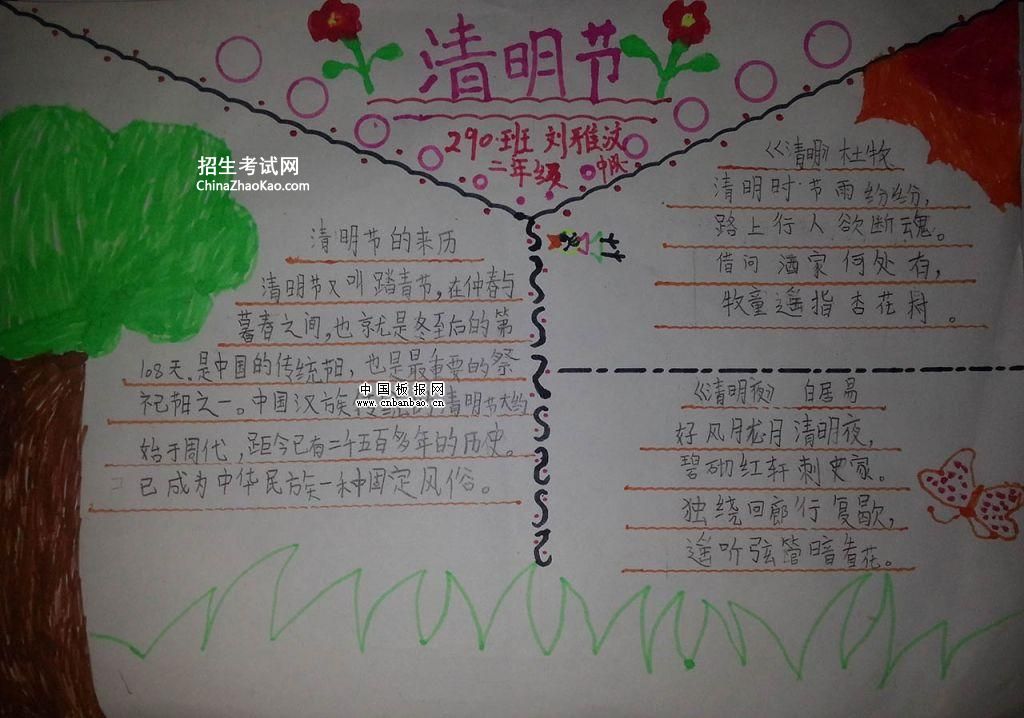 清明节
290班 刘雅汶
二年级 中队
招生考试网
ChinaZhaoKao.com
清明节的来历
清明节又叫踏青节,在仲春与
暮春之间,也就是冬至后的第
108天。是中国的传统节日,也是最重要的祭
祀节日之一。中国汉族 清明节大约
始于周代,距今已有二千五百多年的历史。
已成为中华民族一种固定风俗。
中国板报网
www.cnbanbao.cn
《清明》杜牧
清明时节雨纷纷,
路上行人欲断魂。
借问酒家何处有,
牧童遥指杏花村。
《清明夜》 白居易
好风胧月清明夜,
碧砌红轩刺史家。
独绕回廊行复歇,
遥听弦管暗看花。